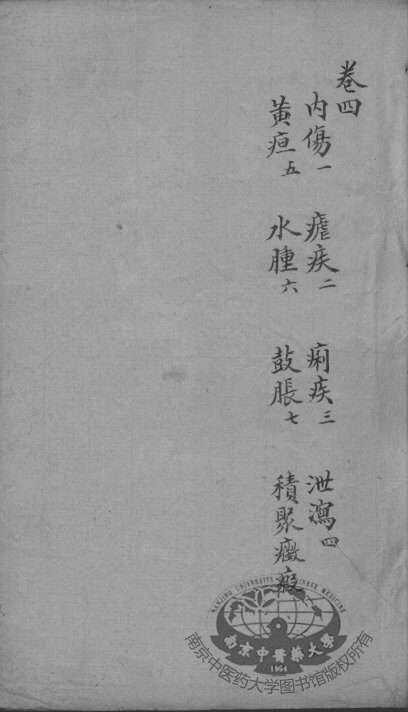 卷四
内傷一 瘧疾二 痢疾三 泄瀉四
黃疸五 水腫六 鼓脹七 積聚癥瘕
NANJING UNIVERSITY OF CHINESE MEDICINE
南京中醫藥大學
1954
南京中医药大学图书馆版权所有